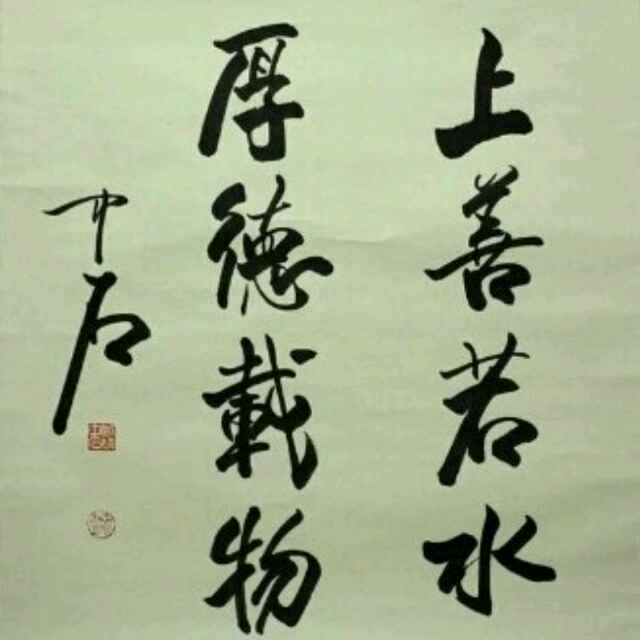 上善若水
厚德載物
中石